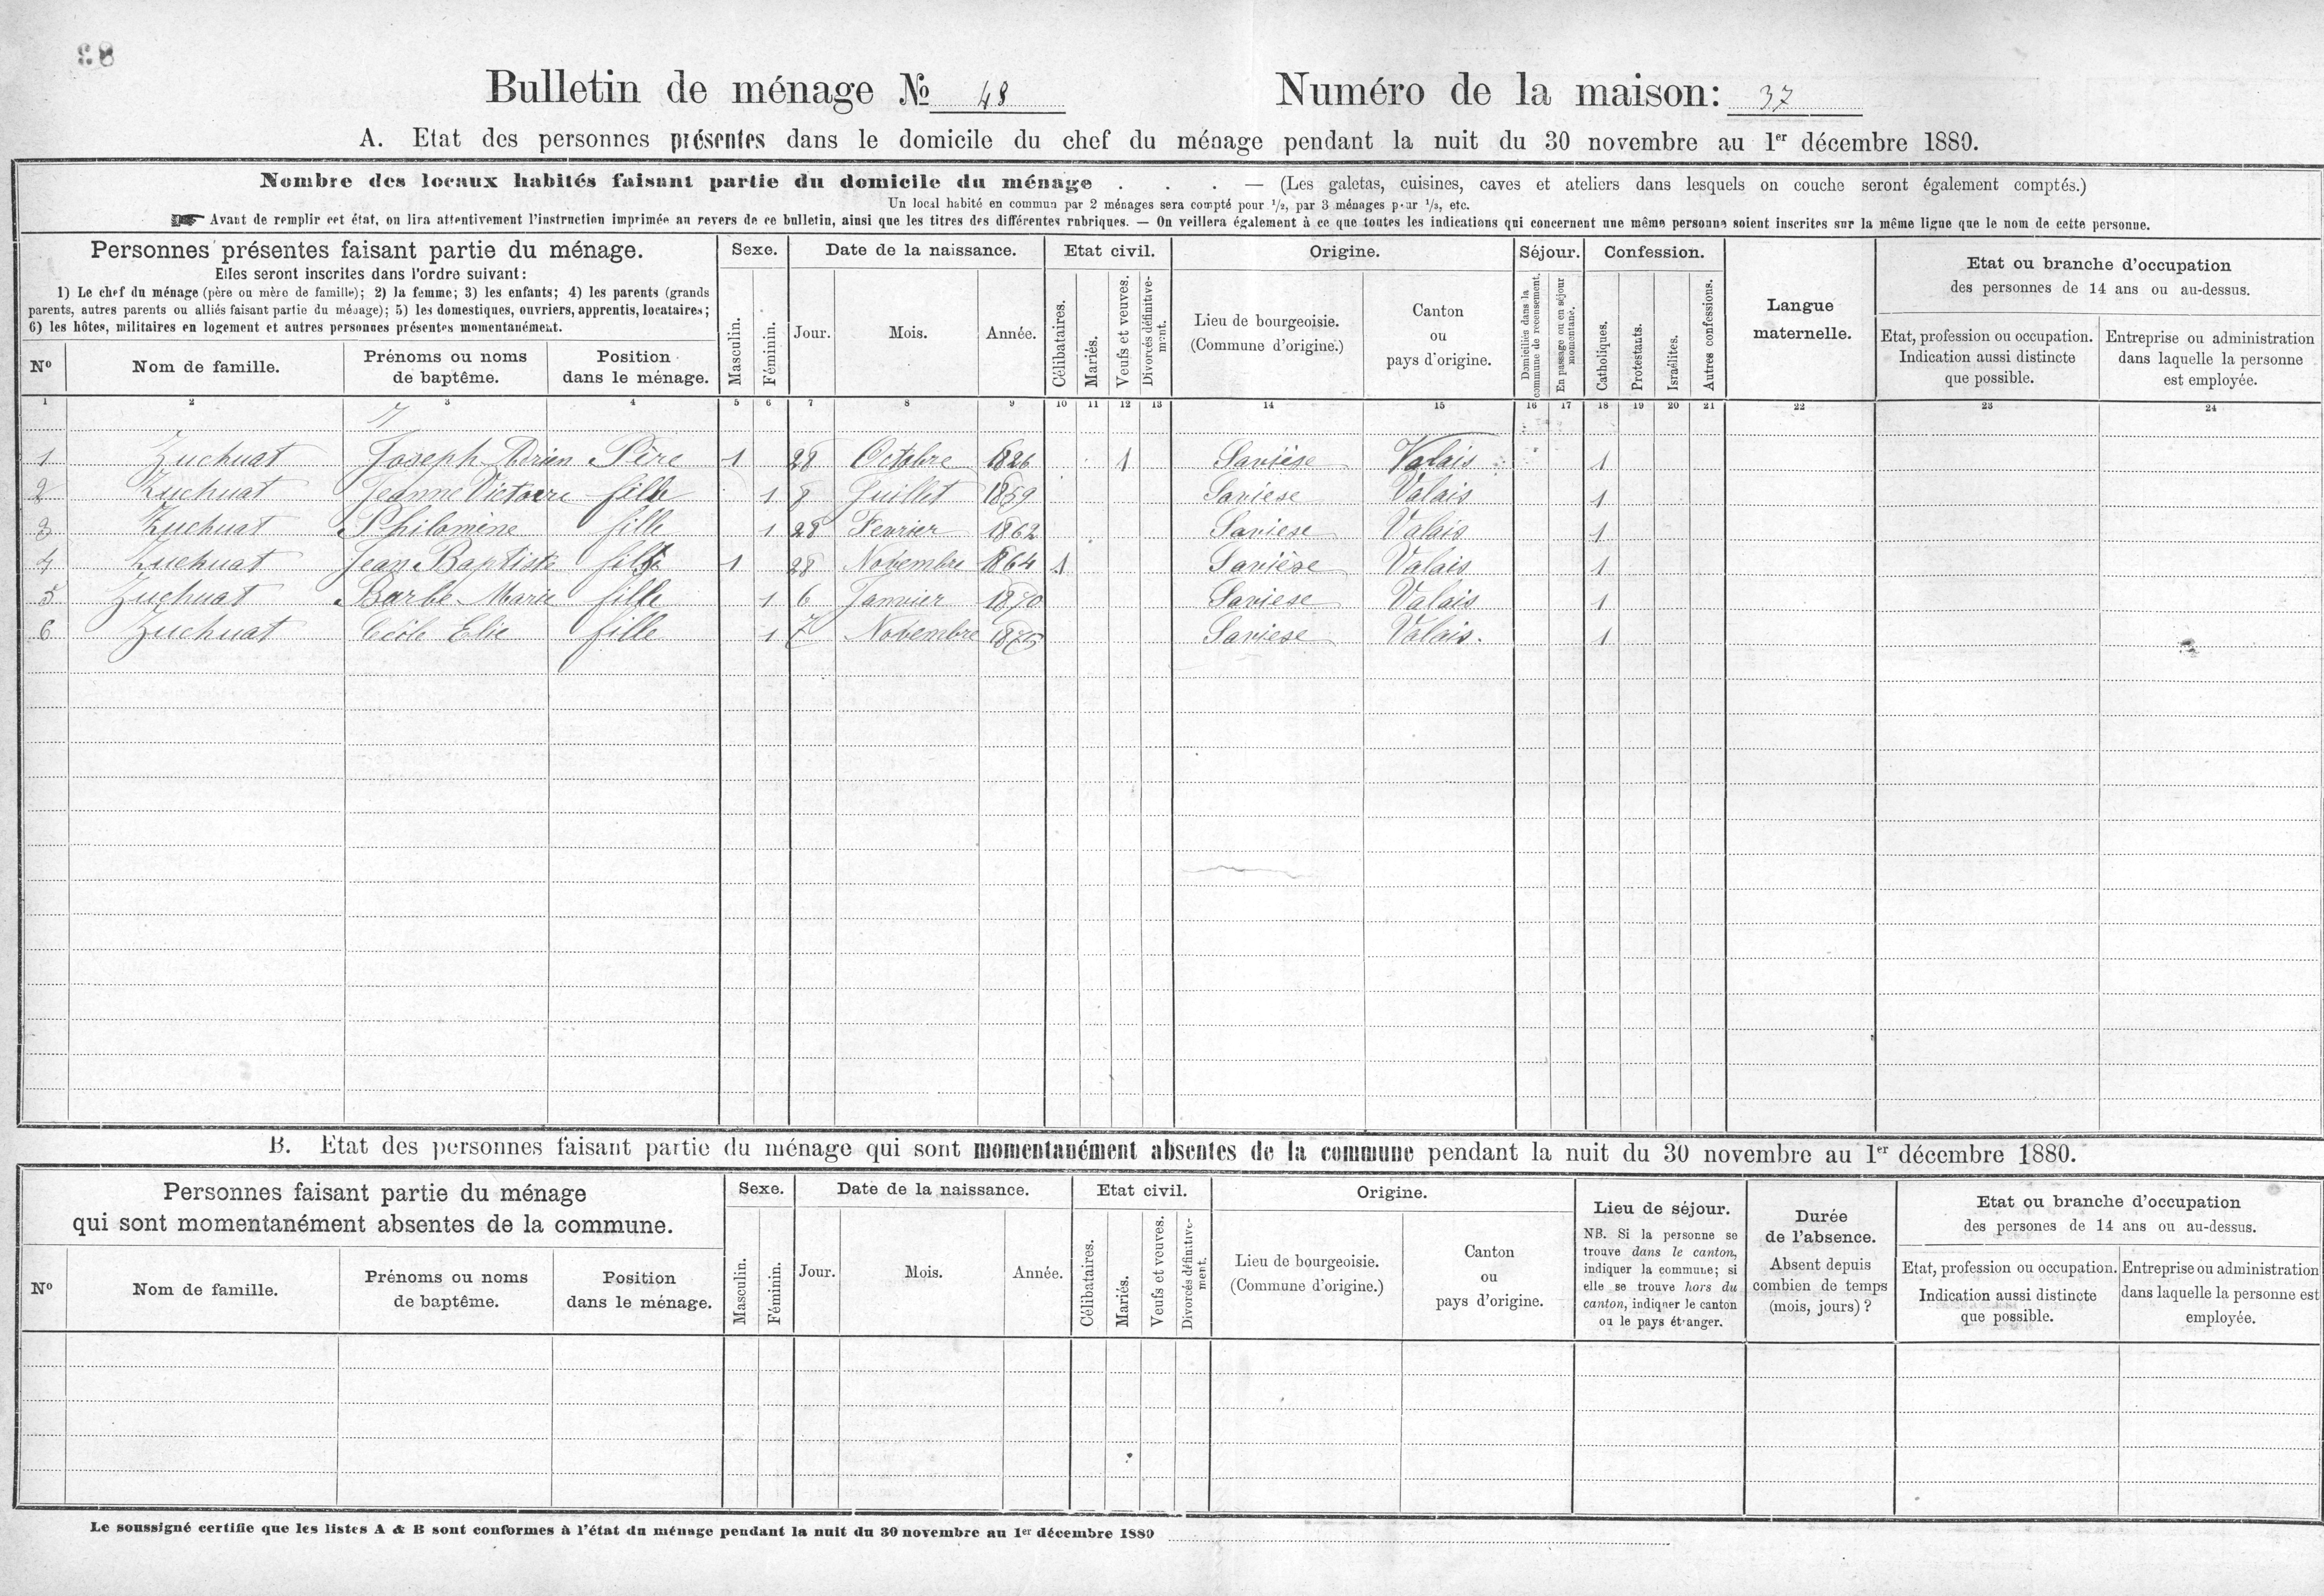 Bulletin de ménage № 48 Numéro de la maison: 37
A. Etat des personnes présentes dans le domicile du chef du ménage pendant la nuit du 30 novembre au 1er décembre 1880.
Nombre des locaux habités faisant partie du domicile du ménage . . . — (Les galetas, cuisines, caves et ateliers dans lesquels on couche seront également comptés.)
Un local habité en commun par 2 ménages sera compté pour 1/2, par 3 ménages pour 1/3, etc.
Avant de remplir cet état, on lira attentivement l'instruction imprimée au revers de ce bulletin, ainsi que les titres des différentes rubriques. — On veillera également à ce que toutes les indications qui concernent une même personne soient inscrites sur la même ligne que le nom de cette personne.
Personnes présentes faisant partie du ménage.
Elles seront inscrites dans l'ordre suivant:
1) Le chef du ménage (père ou mère de famille); 2) la femme; 3) les enfants; 4) les parents (grands
parents, autres parents ou alliés faisant partie du ménage); 5) les domestiques, ouvriers, apprentis, locataires;
6) les hôtes, militaires en logement et autres personnes présentes momentanément.
Nº
Nom de famille.
Prénoms ou noms
de baptême.
Position
dans le ménage.
Sexe.
Masculin.
Féminin.
Date de la naissance.
Jour.
Mois.
Année.
Etat civil.
Célibataires.
Mariés.
Veufs et veuves.
Divorcés définitive-
ment.
Origine.
Lieu de bourgeoisie.
(Commune d'origine.)
Canton
ou
pays d'origine.
Séjour.
Domiciliées dans la
commune de recensement.
En passage ou en séjour
momentané.
Confession.
Catholiques.
Protestants.
Israélites.
Autres confessions.
Langue
maternelle.
Etat ou branche d'occupation
des personnes de 14 ans ou au-dessus.
Etat, profession ou occupation.
Indication aussi distincte
que possible.
Entreprise ou administration
dans laquelle la personne
est employée.
1 2 3 4 5 6 7 8 9 10 11 12 13 14 15 16 17 18 19 20 21 22 23 24
1 Zuchuat Joseph Adrien Père 1 28 Octobre 1826 1 Savièse Valais 1
2 Zuchuat Jeanne Victoire fille 1 8 Juillet 1859 Saviese Valais 1
3 Zuchuat Philomène fille 1 28 Fevrier 1862 Saviese Valais 1
4 Zuchuat Jean Baptiste fils 1 28 Novembre 1864 1 Savièse Valais 1
5 Zuchuat Barbe Marie fille 1 6 Janvier 1870 Saviese Valais 1
6 Zuchuat Cécile Elie fille 1 7 Novembre 1875 Saviese Valais. 1
B. Etat des personnes faisant partie du ménage qui sont momentanément absentes de la commune pendant la nuit du 30 novembre au 1er décembre 1880.
Personnes faisant partie du ménage
qui sont momentanément absentes de la commune.
Nº
Nom de famille.
Prénoms ou noms
de baptême.
Position
dans le ménage.
Sexe.
Masculin.
Féminin.
Date de la naissance.
Jour.
Mois.
Année.
Etat civil.
Célibataires.
Mariés.
Veufs et veuves.
Divorcés définitive-
ment.
Origine.
Lieu de bourgeoisie.
(Commune d'origine.)
Canton
ou
pays d'origine.
Lieu de séjour.
NB. Si la personne se
trouve dans le canton,
indiquer la commune; si
elle se trouve hors du
canton, indiquer le canton
ou le pays étranger.
Durée
de l'absence.
Absent depuis
combien de temps
(mois, jours) ?
Etat ou branche d'occupation
des persones de 14 ans ou au-dessus.
Etat, profession ou occupation.
Indication aussi distincte
que possible.
Entreprise ou administration
dans laquelle la personne est
employée.
Le soussigné certifie que les listes A & B sont conformes à l'état du ménage pendant la nuit du 30 novembre au 1er décembre 1880